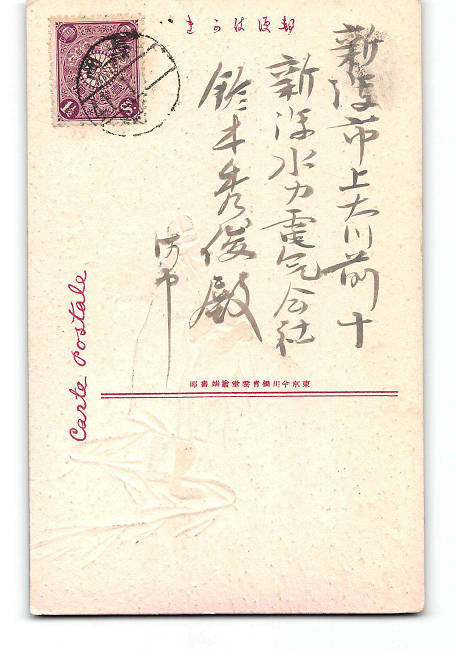 郵便はかき
新潟市上大川前十
新潟水力電気会社
鈴木秀俊殿
東京今川橋青雲堂繪端書部
Carte Postale